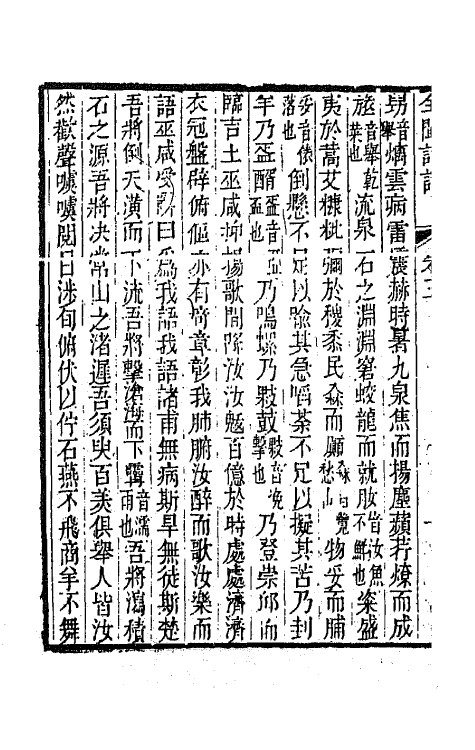 全閩詩話 卷二
雲病雷震赫時暑九泉焦而揚塵蘋若燎而成
音舉乾菜也流泉一石之淵淵窮蛟龍而就音汝魚不鮮也粢盛
夷於蒿艾糠粃彌於稷黍民而願物妥而脯
妥音倭落也倒懸不足以喻其急嚼荼不足以擬其苦乃刲
羊乃盃醑乃鳴螺乃鼓擊也乃登崇邱而
臨吉土巫咸抑揚歌間降汝汝魃百億於時處處濟濟
衣冠盤辟俯傴亦有章彰我肺腑汝醉而歌汝樂而
語巫咸受辭曰爲我語我語諸甫無病斯旱無徒斯楚
吾將倒天潢而下流吾將擊滄海而下音濡雨也吾將瀉積
石之源吾將决常山之渚遲吾須臾百美俱舉人皆汝
然歡聲嘑嘑閱日浹旬俯伏以佇石燕不飛商羊不舞